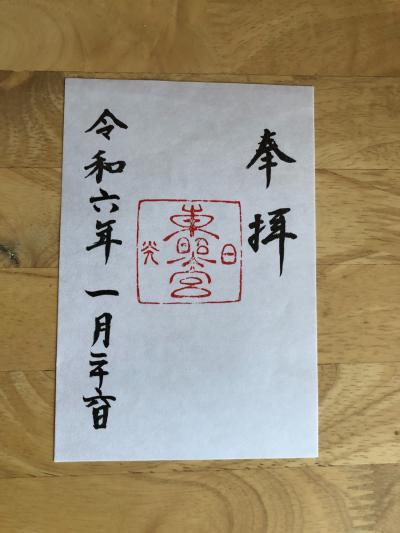 奉拝
日光
東照宮
令和六年 一月二十六日